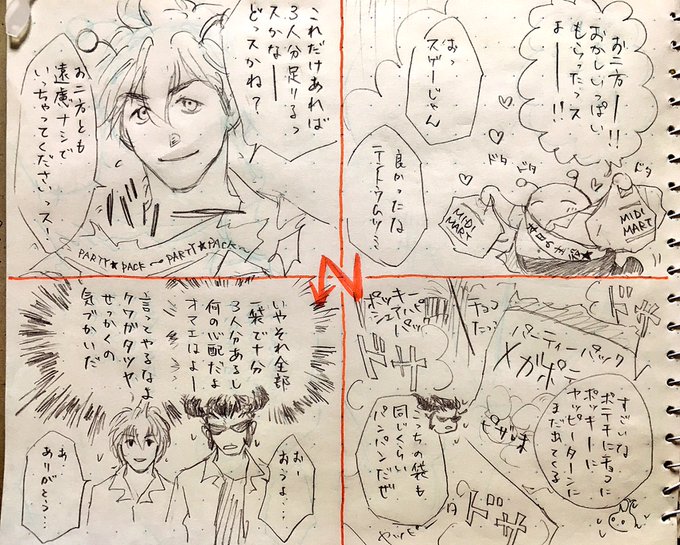 お二方ーー!!
おかしいっぱい
もらったっス
よーー!!
おっ
スゲーじゃん
良かったな
テントウムシ…
ドタ
ドタ
ドタ
MIDI
MART
MIDI
MART
パーティーパック
メガポテ
チョコ
たっ
ヤッキー
シェアパ
パック
ドサ
ドサ
すごいね
ポテチにチョコに
ポッキーに
ヤッピーターンに
まだあてくる
ピザ味
こっちの袋も
同じくらい
パンパンだぜ
ドサ
これだけあれば
3人分足りるっ
スかなーー
どっスかね?
お二方とも
遠慮ナシで
いっちゃってくださいっスー
PARTY★PACK〜PARTY★PACK〜
いやそれ全部
一袋で十分
3人分あるし
何の心配だよ
オマエはよー
言ってやるなよ
クワガタツヤ…
せっかくの
気づかいだ
おー
おうよ…
あ…
ありがとう…